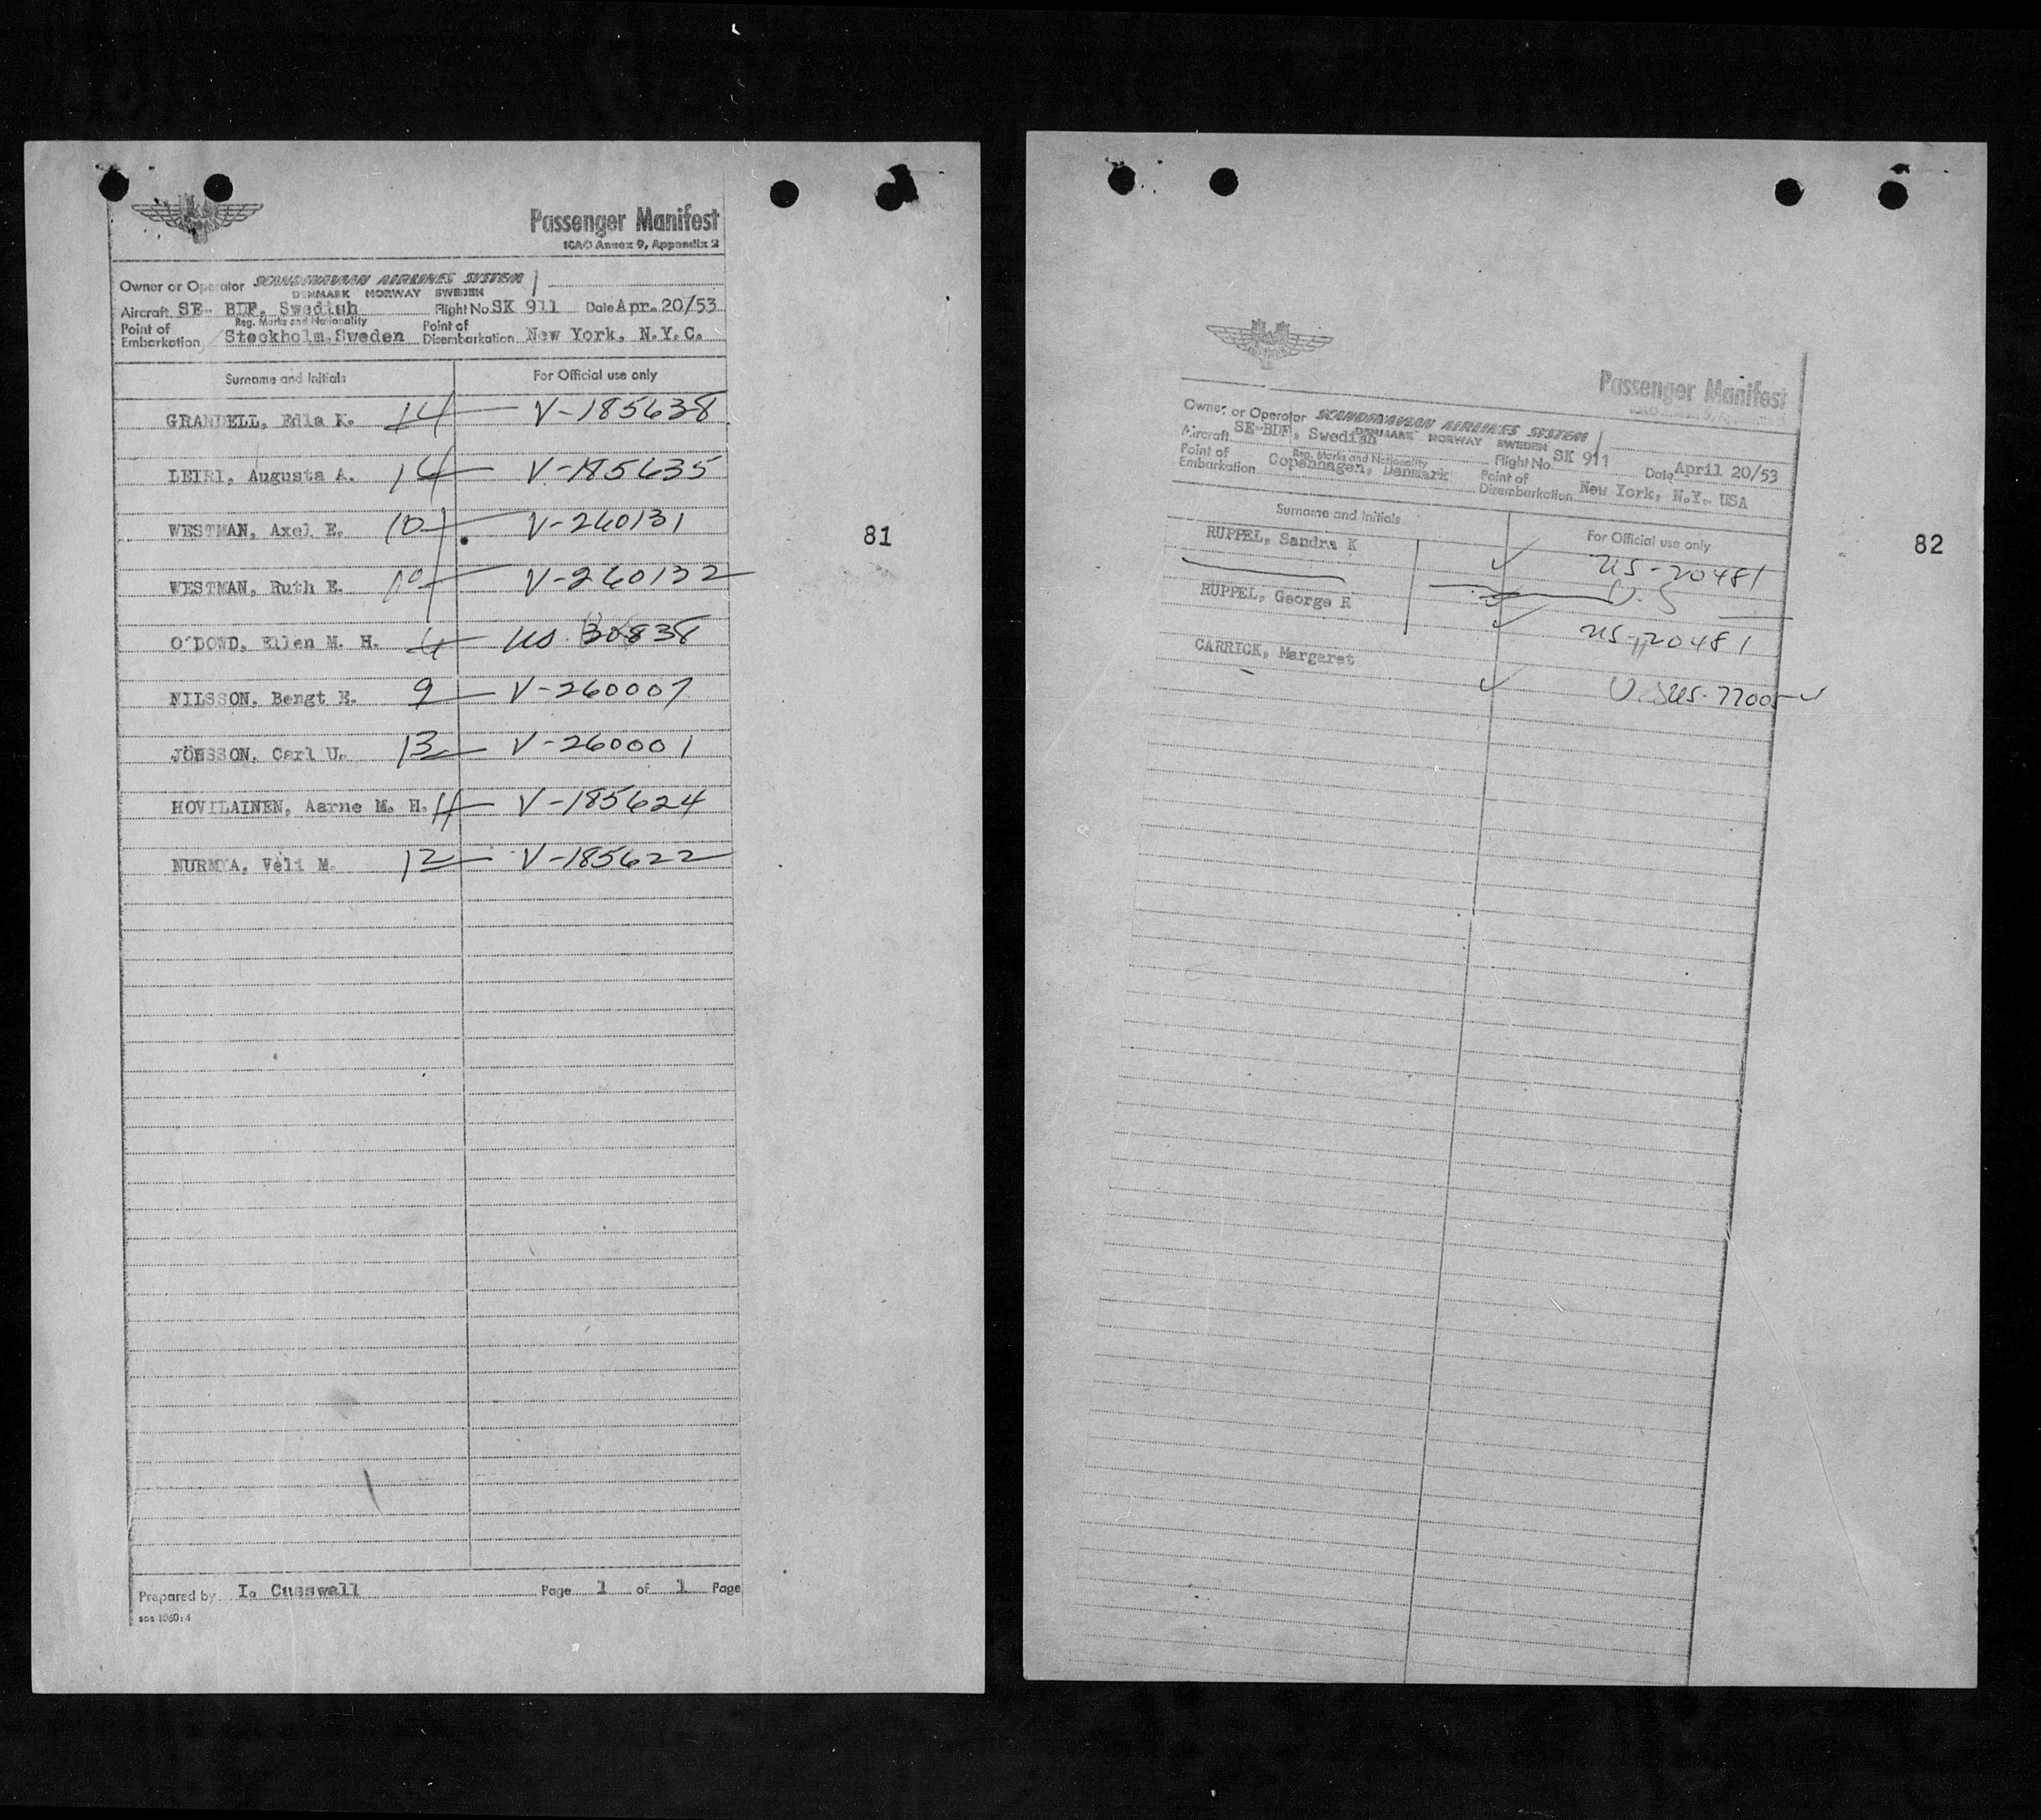 Passenger Manifest
ICAO Annex 9, Appendix 2
Owner or Operator SCANDINAVIAN AIRLINES SYSTEM
DENMARK NORWAY SWEDEN
Aircraft SE- BDF, Swedish Flight No SK 911 Date Apr. 20/53
Reg. Marks and Nationality
Point of Embarkation Stockholm, Sweden Point of Disembarkation New York, N.Y.C.
Surname and Initials For Official use only
GRANDELL, Edla K. 14 V-185638
LEIRI, Augusta A. 14 V-185635
WESTMAN, Axel E. 10 V-260131
WESTMAN, Ruth E. 10 V-260132
O'DOWD, Ellen M. H. 4 US 30838
NILSSON, Bengt E. 9 V-260007
JÖNSSON, Carl U. 13 V-260001
HOVILAINEN, Aarne M. H. 11 V-185624
NURMYA, Veli M. 12 V-185622
81
Prepared by I. Cusswall Page 1 of 1 Page
sas 1060:4
Passenger Manifest
ICAO Annex 9, Appendix 2
Owner or Operator SCANDINAVIAN AIRLINES SYSTEM
DENMARK NORWAY SWEDEN
Aircraft SE-BDF, Swedish Flight No. SK 911 Date April 20/53
Reg. Marks and Nationality
Point of Embarkation Copenhagen, Denmark Point of Disembarkation New York, N.Y. USA
Surname and Initials For Official use only
RUPPEL, Sandra K US-20481
U.S
RUPPEL, George R US-20481
CARRICK, Margaret U.S US-77005
82